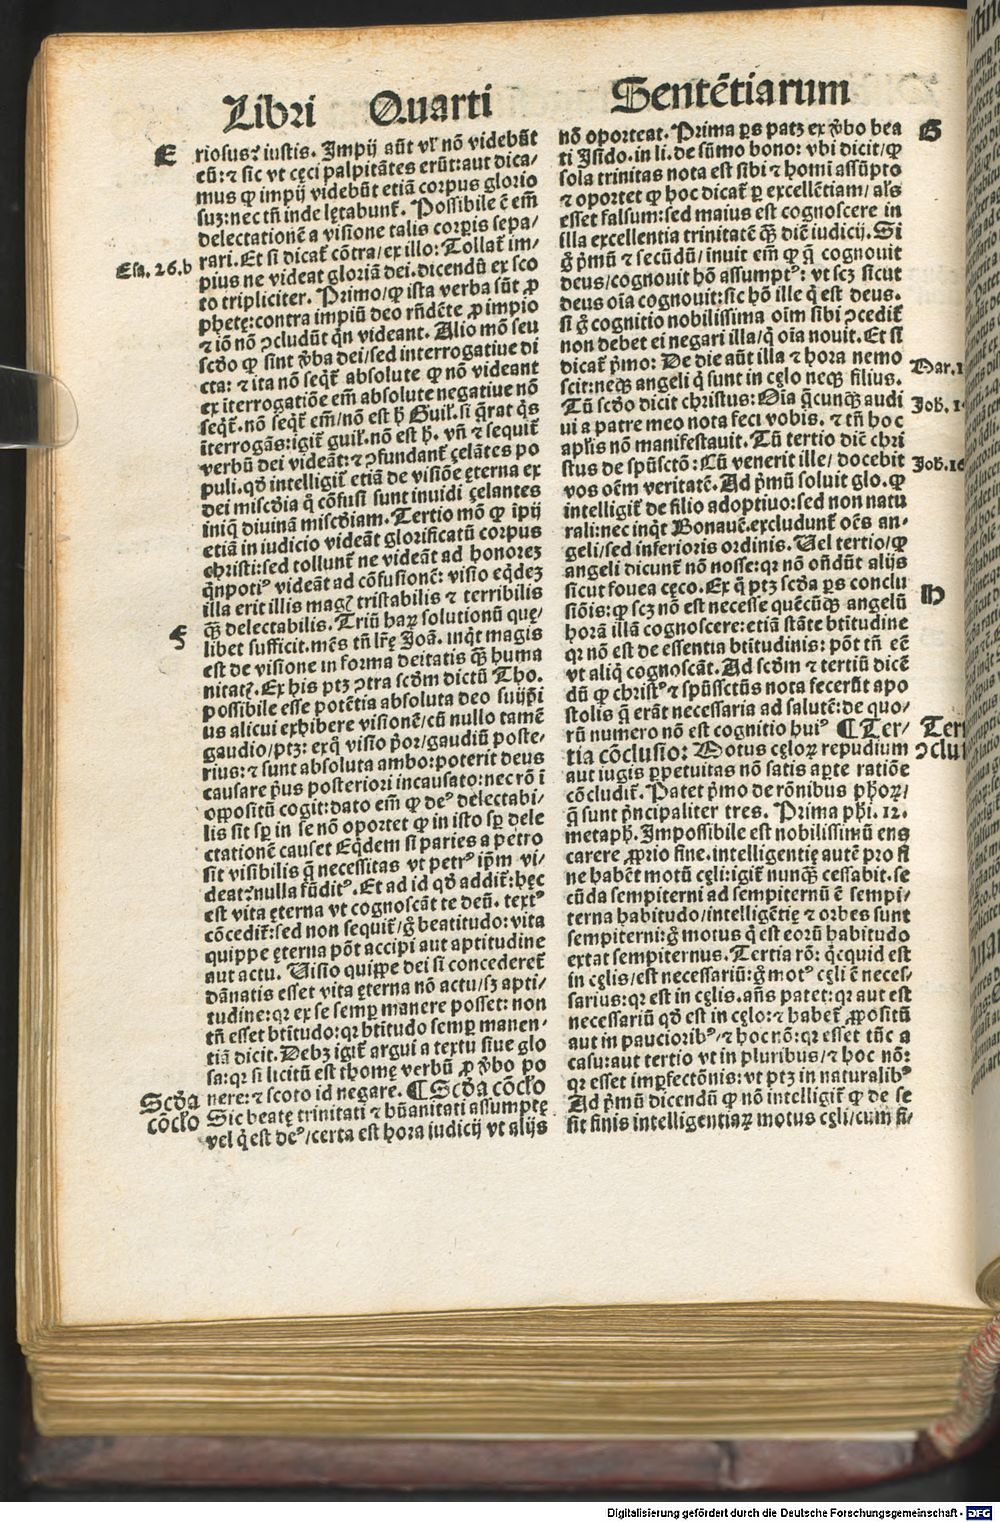 Libri Quarti Sentētiarum
E
riosus⁊ iustis. Impij aūt vł nō videbūt
eū: ⁊ sic vt cęci palpitātes erūt: aut dica/
mus ꝙ impij videbūt etiā corpus glorio
suꝫ: nec tñ inde lętabunt᷑. Possibile ē em̄
delectationē a visione talis corꝑis sepa/
rari. Et si dicat᷑ cōtra/ ex illo: Tollat᷑ im/
Esa. 26. b
pius ne videat gloriā dei. dicendū ex sco
to tripliciter. Primo/ ꝙ ista verba sūt ꝓ
phetę: contra impiū deo rn̄dēte ꝓ impio
⁊ iō nō ↄcludūt qn̄ videant. Alio mō seu
scd̄o ꝙ sint v̄ba dei/ sed interrogatiue di
cta: ⁊ ita nō seqt᷑ absolute ꝙ nō videant
ex īterrogatiōe em̄ absolute negatiue nō
seqt᷑. nō seqt᷑ em̄/ nō est h̄ Guil᷑. si q̄rat q̇s
īterrogās: igit᷑ guil᷑. nō est h̄. vn̄ ⁊ sequit᷑
verbū dei videāt: ⁊ ↄfundant᷑ çelātes po
puli. qd̄ intelligit᷑ etiā de visiōe ęterna ex
dei misc̄dia q̄ cōfusi sunt inuidi çelantes
iniq̄ diuinā misc̄diam. Tertio mō ꝙ ip̄ij
etiā in iudicio videāt glorificatū corpus
christi: sed tollunt᷑ ne videāt ad honoreꝫ
qn̄poti⁹ videāt ad cōfusionē: visio eq̇deꝫ
illa erit illis mag᷑ tristabilis ⁊ terribilis
q̄ꝫ delectabilis. Triū haꝝ solutionū quę/
F
libet sufficit. mēs tn̄ lr̄ę Joā. inq̇t magis
est de visione in forma deitatis q̄ꝫ huma
nitat᷑. Ex his ptꝫ ↄtra scd̄m dictū Tho.
possibile esse potētia absoluta deo suijp̄i
us alicui exhibere visionē/ cū nullo tamē
gaudio/ ptꝫ: exq̄ visio p̄or/ gaudiū poste/
rius: ⁊ sunt absoluta ambo: poterit deus
causare p̄us posteriori incausato: nec rō ī
oppositū cogit: dato em̄ ꝙ de⁹ delectabi/
lis sit sꝑ in se nō oportet ꝙ in isto sꝑ dele
ctationē causet Eq̇dem si paries a petro
sit visibilis q̄ necessitas vt petr⁹ ip̄m vi/
deat⁊ nulla fūdit⁹. Et ad id qd̄ addit᷑: hęc
est vita ęterna vt cognoscāt te deū. text⁹
cōcedit᷑: sed non sequit᷑/ ḡ beatitudo: vita
quippe ęterna pōt accipi aut aptitudine
aut actu. Uisio quippe dei si concederet᷑
dānatis esset vita ęterna nō actu/ sꝫ apti/
tudine: qꝛ ex se semꝑ manere posset: non
tn̄ esset btītudo: qꝛ btītudo semꝑ manen/
tiā dicit. Debꝫ igit᷑ argui a textu siue glo
sa: qꝛ si licitū est thomę verbū ꝓ v̄bo po
nere: ⁊ scoto id negare. ¶ Scd̄a cōclo
Scd̄a
cōclo
Sic beatę trinitati ⁊ hūanitati assumptę
vel q̇ est de⁹/ certa est hora iudicij vt alijs
nō oporteat. Prima ꝑs patꝫ ex v̄bo bea
G
ti Isido. in li. de sūmo bono: vbi dicit/ ꝙ
sola trinitas nota est sibi ⁊ homī assūpto
⁊ oportet ꝙ hoc dicat᷑ ꝑ excellētiam/ al̄s
esset falsum: sed maius est cognoscere in
illa excellentia trinitatē q̄ꝫ diē iudicij. Si
ḡ p̄mū ⁊ secūdū/ inuit em̄ ꝙ q̇ cognouit
deus/ cognouit hō assumpt⁹: vt scꝫ sicut
deus oīa cognouit: sic hō ille q̇ est deus.
si ḡ cognitio nobilissima oīm sibi ↄcedit᷑
non debet ei negari illa/ q̄ oīa nouit. Et si
dicat᷑ p̄mo: De die aūt illa ⁊ hora nemo
Mar. 1
scit: neqꝫ angeli q̇ sunt in cęlo neqꝫ filius.
Tū scd̄o dicit christus: Oīa q̄cunqꝫ audi
Joh. 1
ui a patre meo nota feci vobis. ⁊ tn̄ hoc
apl̄is nō manifestauit. Tū tertio diē chri
stus de spūsctō: Cū venerit ille/ docebit
Joh. 16
vos oēm veritatē. Ad p̄mū soluit glo. ꝙ
intelligit᷑ de filio adoptiuo: sed non natu
rali: nec inq̇t Bonauē. excludunt᷑ oēs an/
geli/ sed inferioris ordinis. Uel tertio/ ꝙ
angeli dicunt᷑ nō nosse: qꝛ nō on̄dūt alijs
sicut fouea cęco. Ex q̄ ptꝫ scd̄a ꝑs conclu
H
siōis: ꝙ scꝫ nō est necesse quēcūqꝫ angelū
horā illā cognoscere: etiā stāte btītudine
qꝛ nō est de essentia btītudinis: pōt tn̄ eē
vt aliq̇ cognoscāt. Ad scd̄m ⁊ tertiū dicē
dū ꝙ christ⁹ ⁊ spūssctūs nota fecerūt apo
stolis q̄ erāt necessaria ad salutē: de quo/
rū numero nō est cognitio hui⁹ ¶ Ter/
Ter
ↄclu
tia cōclusio: Motus cęloꝝ repudium
aut iugis ꝑpetuitas nō satis aꝑte ratiōe
cōcludit᷑. Patet p̄mo de rōnibus ph̄oꝝ/
q̄ sunt p̄ncipaliter tres. Prima ph̄i. 12.
metaph. Impossibile est nobilissimū ens
carere ꝓprio fine. intelligentię autē pro fi
ne habēt motū cęli: igit᷑ nunq̄ꝫ cessabit. se
cūda sempiterni ad sempiternū ē sempi/
terna habitudo/ intelligētię ⁊ orbes sunt
sempiterni: ḡ motus q̇ est eorū habitudo
extat sempiternus. Tertia rō: q̇cquid est
in cęlis/ est necessariū: ḡ mot⁹ cęli ē neces/
sarius: qꝛ est in cęlis. an̄s patet: qꝛ aut est
necessariū qd̄ est in cęlo: ⁊ habet᷑ ꝓpositū
aut in paucioribꝰ/ ⁊ hoc nō: qꝛ esset tūc a
casu: aut tertio vt in pluribus/ ⁊ hoc nō:
qꝛ esset imꝑfectōnis: vt ptꝫ in naturalibꝰ
Ad p̄mū dicendū ꝙ nō intelligit᷑ ꝙ de se
sit finis intelligentiaꝝ motus cęli/ cum fi/
Digitalisierung gefördert durch die Deutsche Forschungsgemeinschaft - DFG